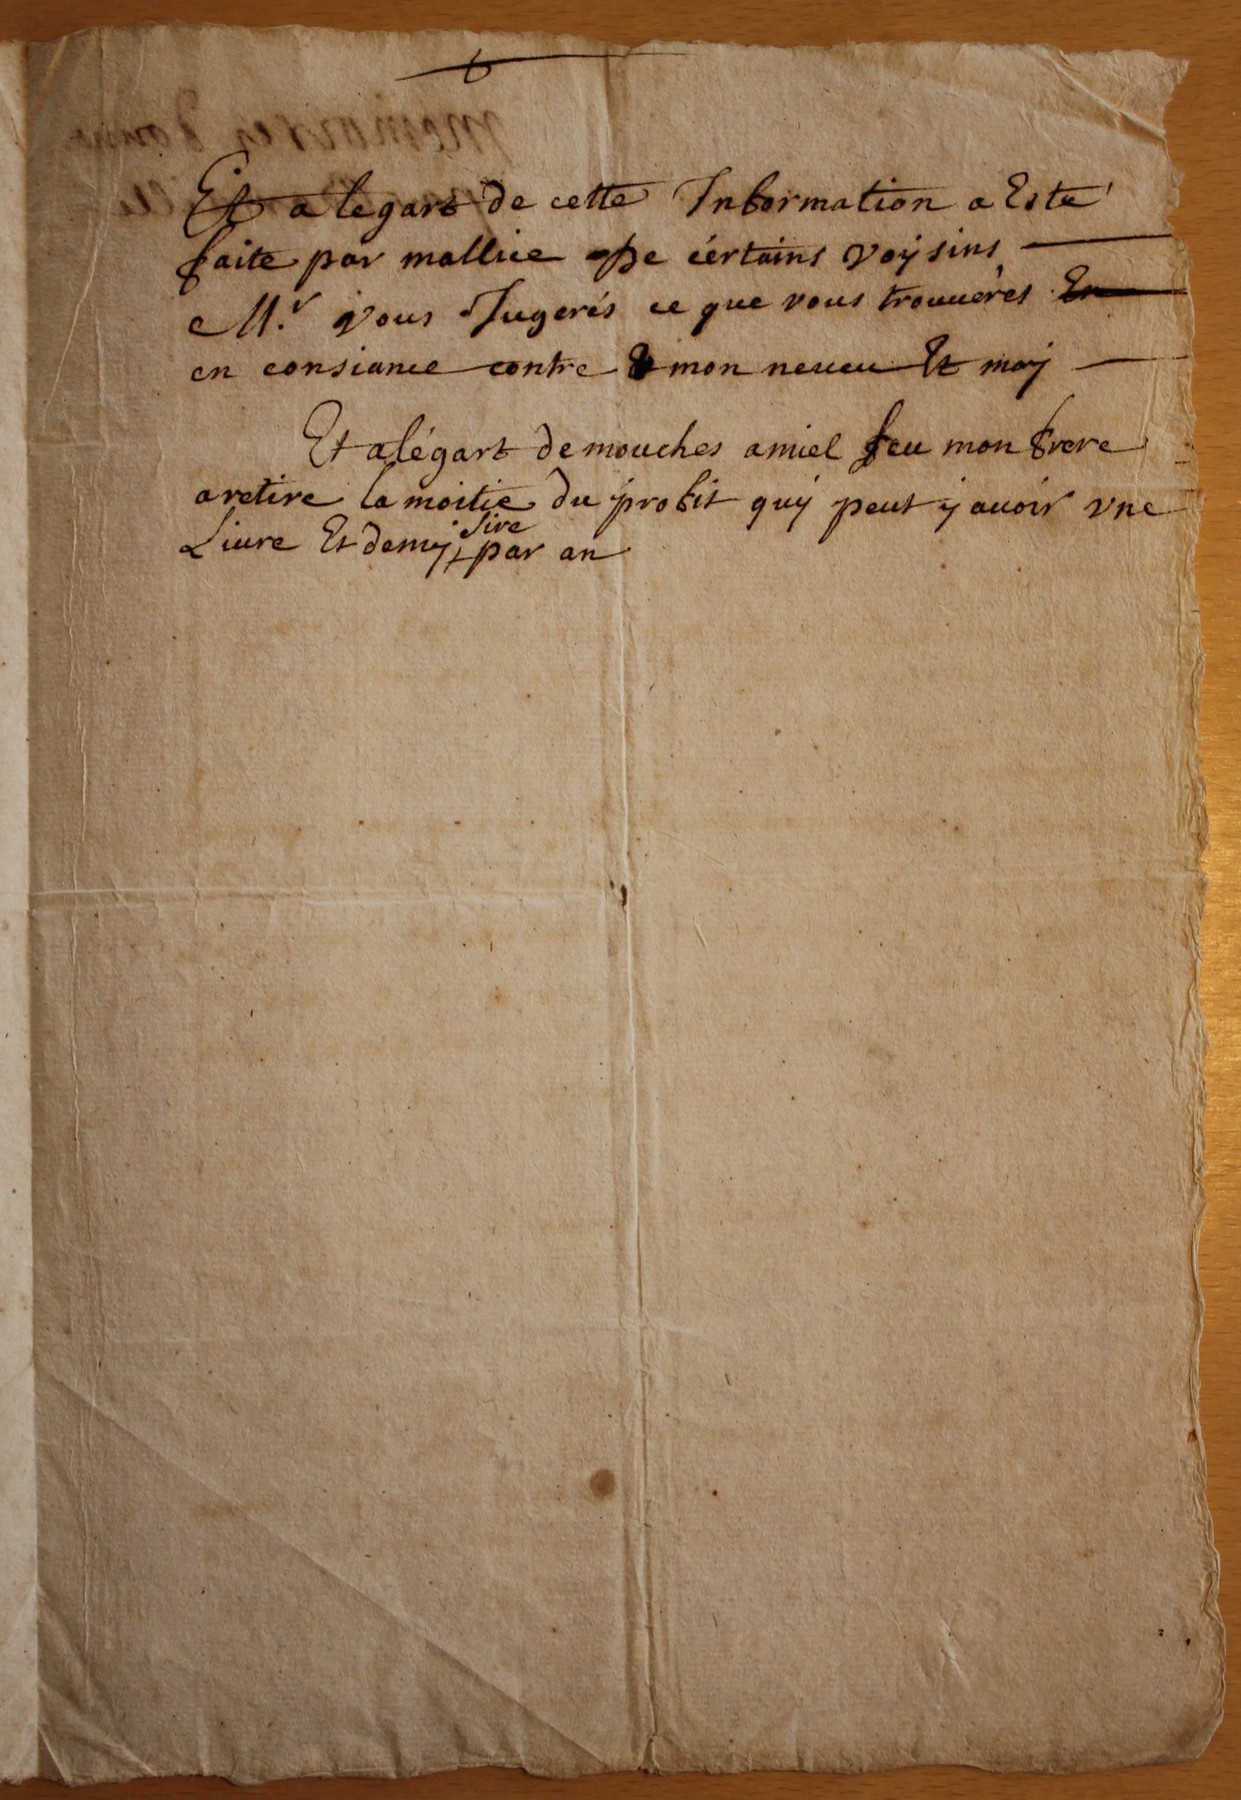 Et a legart de cette Information a Esté
faite par mallice De cértains voÿsins
Mr. vous Jugerés ce que vous trouuerés En
en consiance contre mon neueu Et moÿ
Et alégart demouches amiel feu mon frere
aretire la moitie du profit quÿ peut ÿ auoir vne
sire
Liure Et demÿ par an